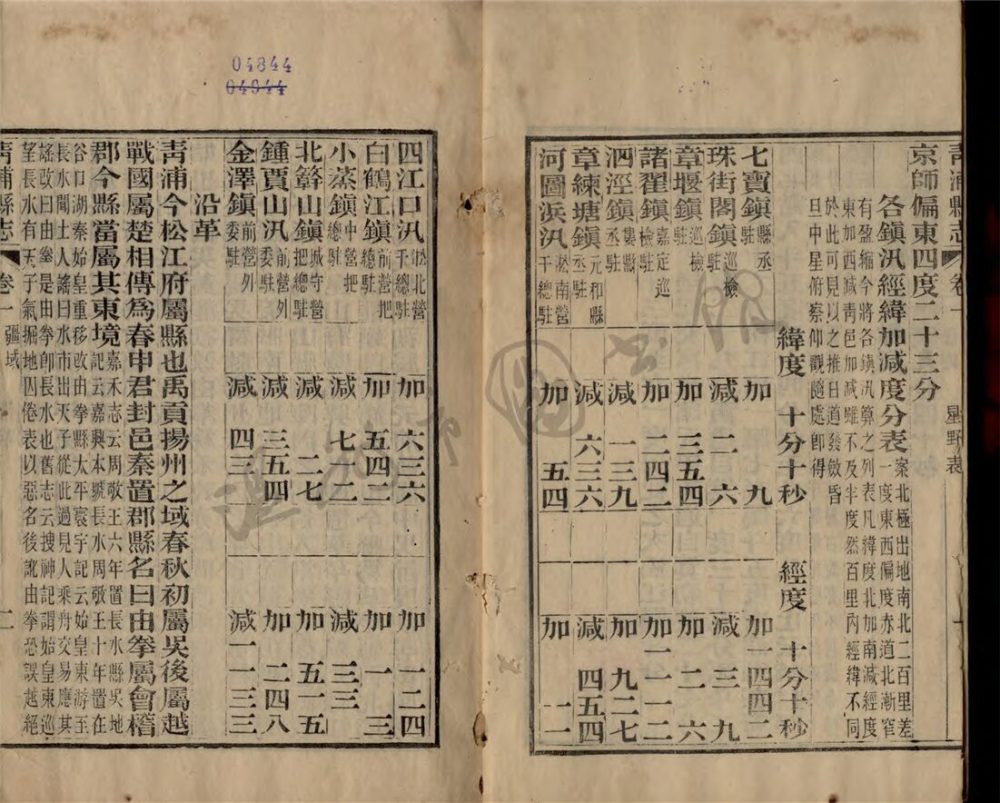 04844
04944
青浦縣志 卷一 星野表
京師偏東四度二十三分
各鎮汛經緯加減度分表 案北極出地南北二百里差一度東西偏度赤道北漸窄
有盈縮今將各鎮汛算之列表凡緯度北加南減經度
東加西減靑邑加減雖不及半度然百里內經緯不同
於此可見以之推日道發斂昏
旦中星俯察仰觀隨處卽得
緯度 十分十秒 經度 十分十秒
七寶鎮 縣丞駐 加 九 加 一四四二
珠街閣鎮 巡檢駐 減 二 六 減 三 九
章堰鎮 巡檢駐 加 三五四 加 二 六
諸翟鎮 嘉定巡檢駐 加 二四二 加 一一二
泗涇鎮 婁縣丞駐 減 一三九 減 九二七
章練塘鎮 元和縣丞駐 減 六三六 減 四五四
河圖浜汛 淞南營千總駐 加 五四 加 一一
四江口汛 淞北營千總駐 加 六三六 加 一二四
白鶴江鎮 前營把總駐 加 五四二 加 一 三
小蒸鎮 中營把總駐 減 七一二 減 三三
北簳山鎮 城守營把總駐 減 二七 加 五一五
鍾賈山汛 前營外委駐 減 三五四 加 二四八
金澤鎮 前營外委駐 減 四三 減 一一三三
沿革
靑浦今松江府屬縣也禹貢揚州之域春秋初屬吳後屬越
戰國屬楚相傳爲春申君封邑秦置郡縣名曰由拳屬會稽
郡今縣當屬其東境 嘉禾志云周敬王六年置長水縣吳地記云嘉興本號長水周敬王十年置在
谷口湖秦始皇重移改由拳縣太平寰宇記云始皇東游至
長水聞土人謠曰水市出天子從此過見人乘舟交易應其
謠改曰由拳是由拳卽長水也舊志云搜神記謂始皇東巡
望長水有天子氣掘地囚倦表以惡名後訛由拳恐誤越絕
靑浦縣志 卷一 疆域 二